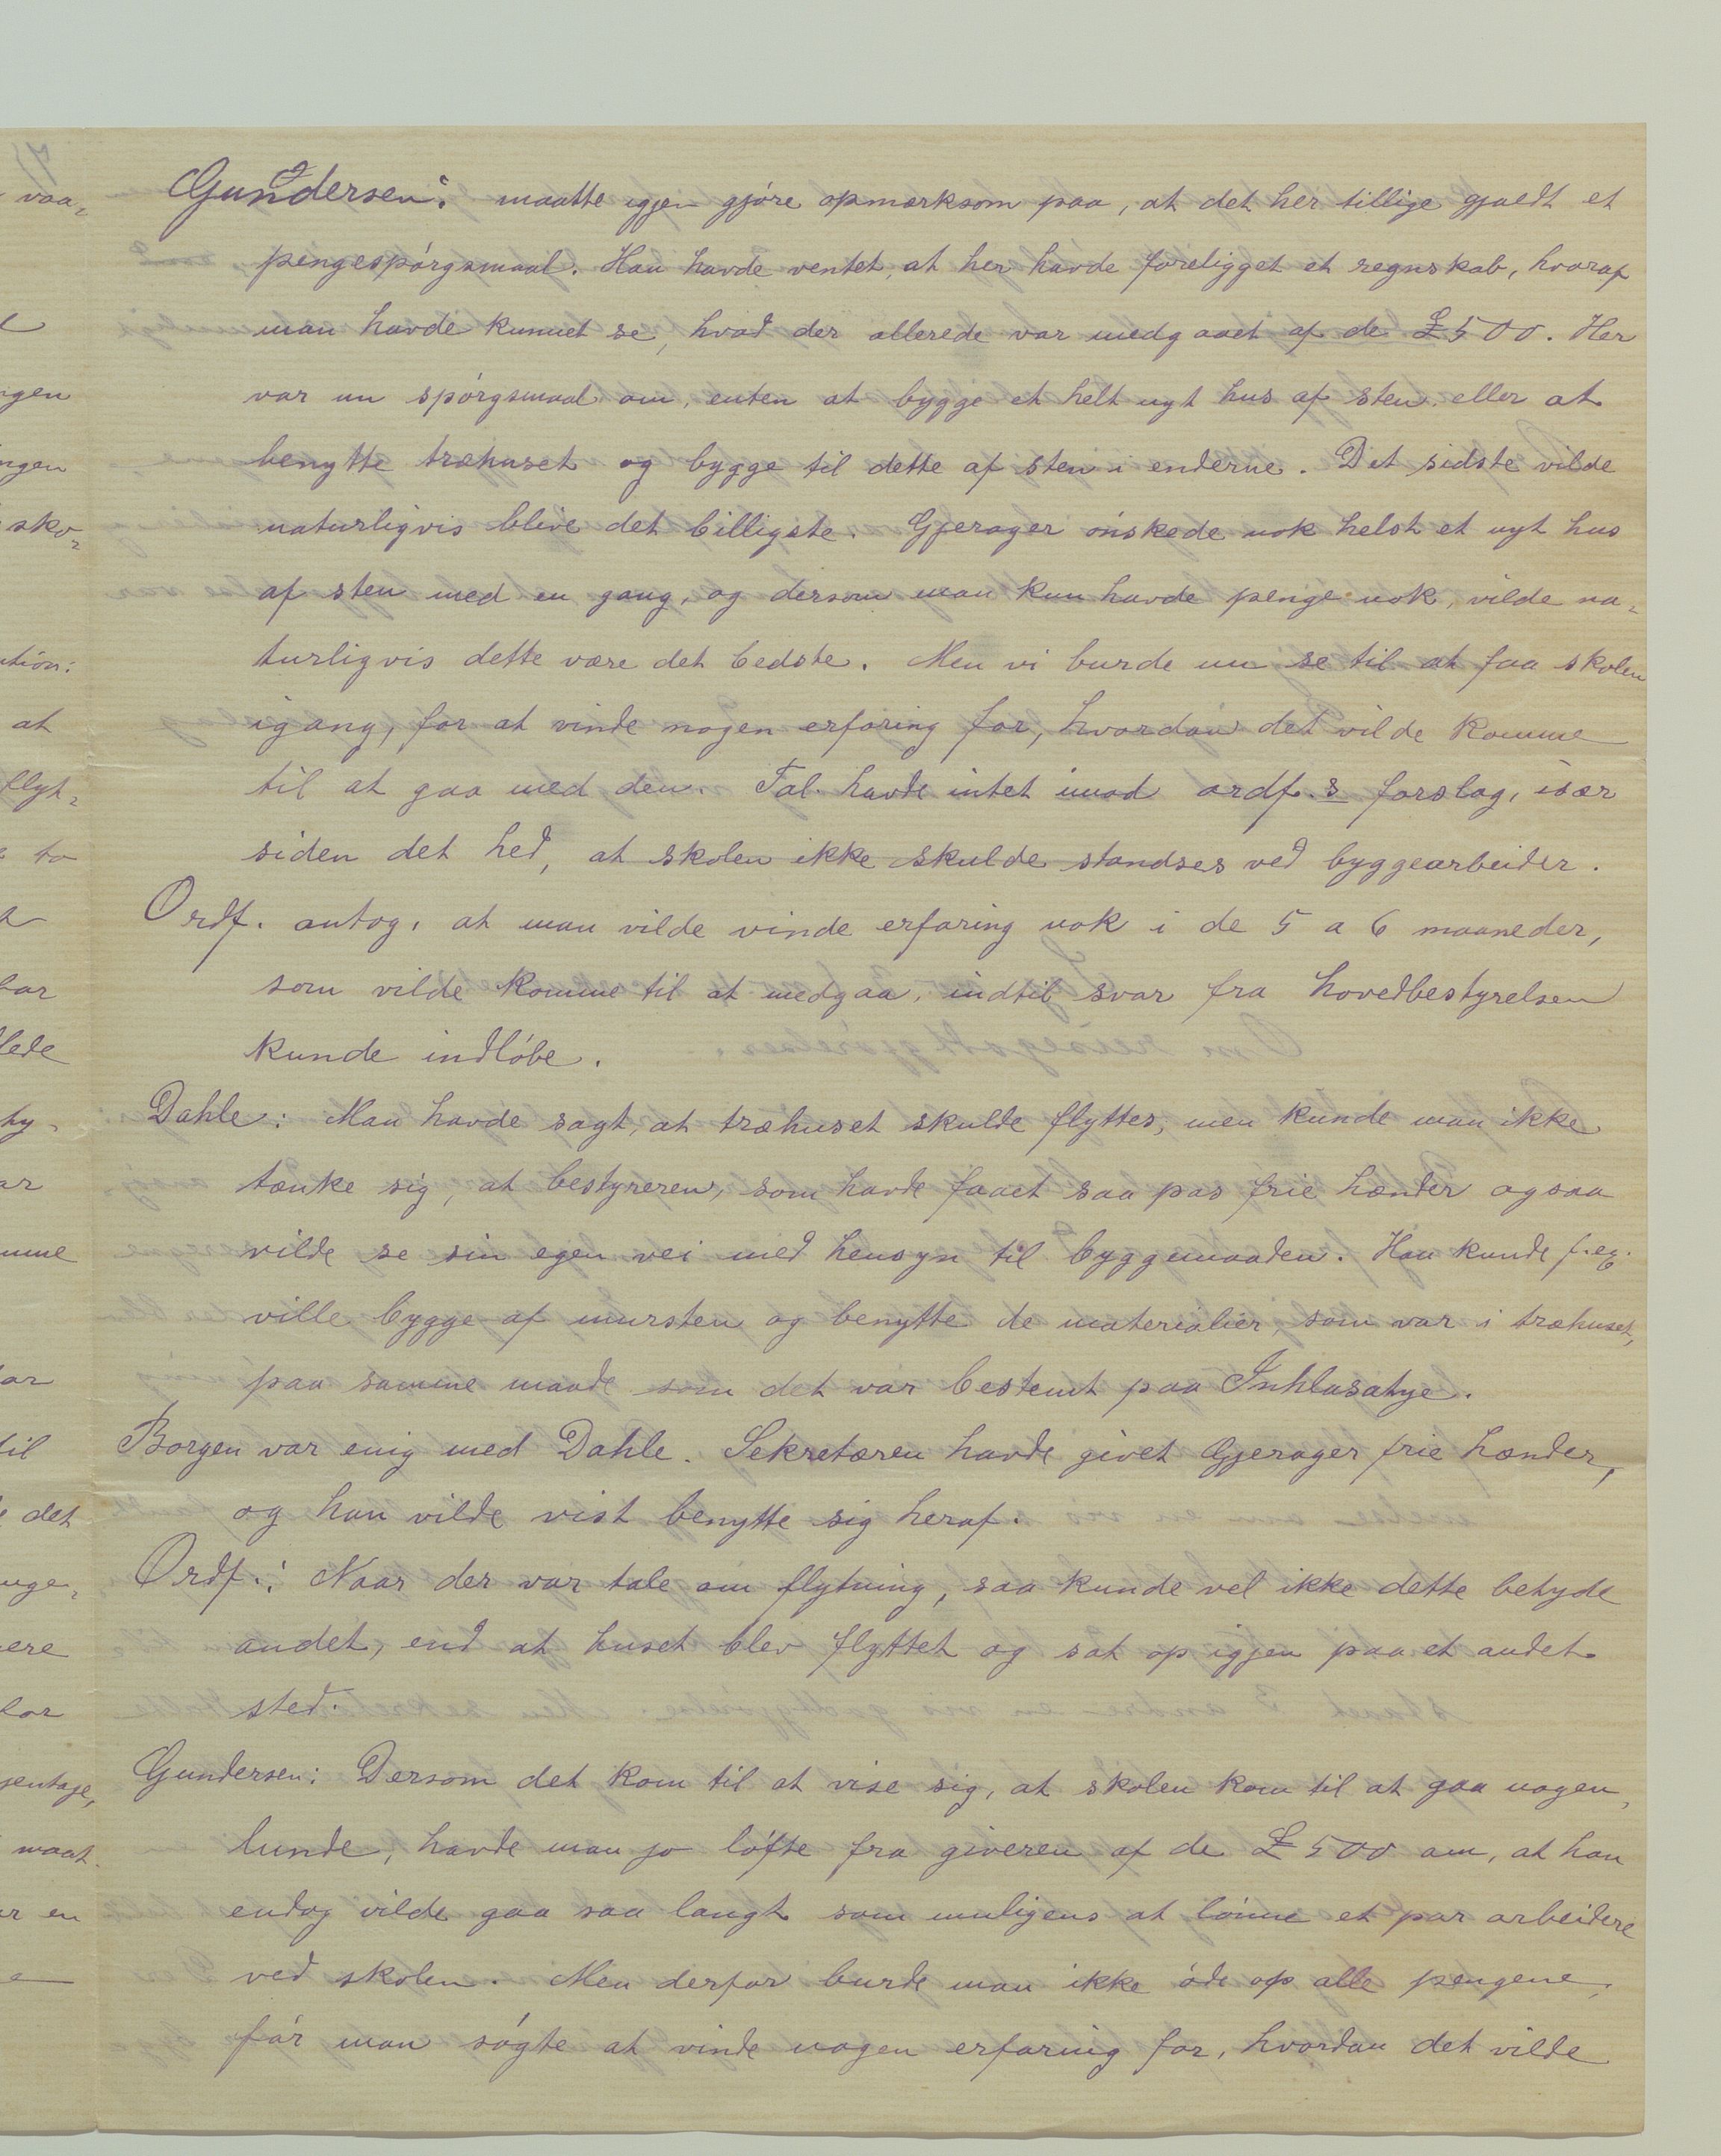 Gundersen: maatte igjen gjóre opmærksom paa, at det her tillige gjældt et
pengespórgsmaal. Han havde ventet, at her havde foreligget et regnskab, hvoraf
man havde kunnet se, hvad der allerede var medgaaet af de £500. Her
var nu spórgsmaal om, enten at bygge et helt nyt hus af sten eller at
benytte træhuset og bygge til dette af sten i enderne. Det sidste vilde
naturligvis blive det billigste. Gjerager ónskede nok helst et nyt hus
af sten med en gang, og dersom man kun havde penge nok, vilde na-
turligvis dette være det bedste. Men vi burde nu se til at faa skolen
igang, for at vinde nogen erfaring for, hvordan det vilde komme
til at gaa med den. Tal. havde intet imod ordf.s forslag, især
siden det hed, at skolen ikke skulde standses ved byggearbeider.
Ordf. antog, at man vilde vinde erfaring nok i de 5 a 6 maaneder,
som vilde komme til at medgaa, indtil svar fra hovedbestyrelsen
kunde indlóbe.
Dahle: Man havde sagt, at træhuset skulde flyttes, men kunde man ikke
tænke sig, at bestyreren, som havde faaet saa pas frie hænder ogsaa
vilde se sin egen vei med hensyn til byggemaaden. Han kunde f.eg.
ville bygge af mursten og benytte de materialier, som var i træhuset,
paa samme maade som det var bestemt paa Inhlasatye.
Borgen var enig med Dahle. Sekretæren havde givet Gjerager frie hænder,
og han vilde vist benytte sig heraf.
Ordf.: Naar der var tale om flytning, saa kunde vel ikke dette betyde
andet, end at huset blev flyttet og sat op igjen paa et andet
sted.
Gundersen: Dersom det kom til at vise sig, at skolen kom til at gaa nogen-
lunde, havde man jo lófte fra giveren af de £500 om, at han
endog vilde gaa saa langt som muligens at lónne et par arbeidere
ved skolen. Men derfor burde man ikke óde op alle pengene,
fór man sógte at vinde nogen erfaring for, hvordan det vilde